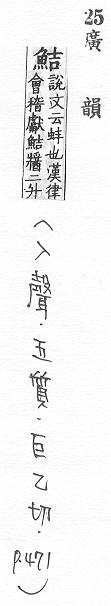 25廣韻
鮚說文云蚌也漢律
會稽獻鮚醬二升
(入聲.五質.巨乙切.
p.471)